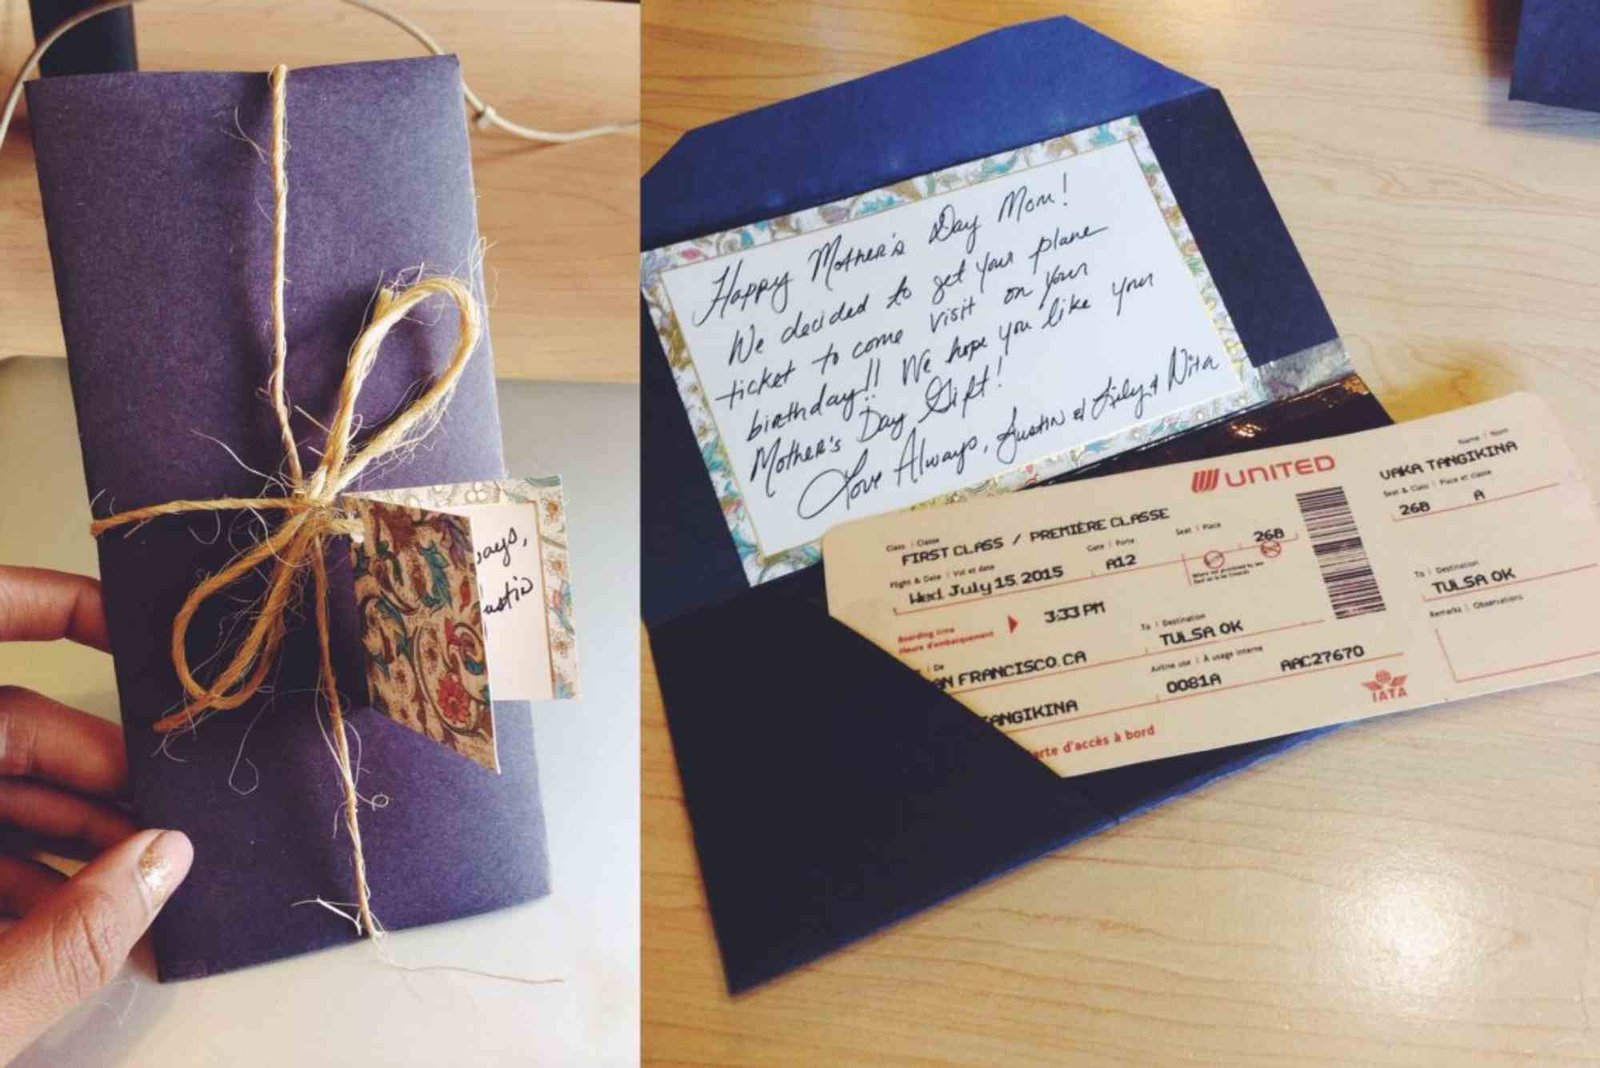 ways,
ustin
Happy Mother's Day Mom!
We decided to get your plane
ticket to come visit on your
birthday!! We hope you like your
Mother's Day Gift!
Love Always, Austin & Lily & Nita
UNITED
Class | Classe
FIRST CLASS / PREMIÈRE CLASSE
Flight & Date | Vol et date
Gate | Porte
Seat | Place
Wed July 15 2015
A12
26B
Boarding time
Heure d'embarquement
3:33 PM
De
AN FRANCISCO CA
To | Destination
TULSA OK
Airline use | À usage interne
ANGIKINA
0081A
AAC27670
arte d'accès à bord
IATA
Name | Nom
VAKA TANGIKINA
Seat & Class | Place et classe
26B A
To | Destination
TULSA OK
Remarks | Observations